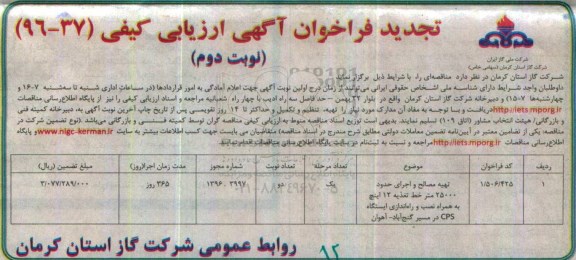 تجدید فراخوان آگهی ارزیابی کیفی (۳۷-۹۶)
(نوبت دوم)
شرکت ملی گاز ایران
شرکت گاز استان کرمان (سهامی خاص)
شرکت گاز استان کرمان در نظر دارد مناقصه‌ای را، با شرایط ذیل برگزار نماید.
داوطلبان واجد شرایط دارای شناسه ملی اشخاص حقوقی ایرانی می‌توانند از زمان درج اولین نوبت آگهی جهت اعلام آمادگی به امور قراردادها (در ساعات اداری شنبه تا سه‌شنبه ۷-۱۶ و
چهارشنبه‌ها ۷-۱۵) و دبیرخانه شرکت گاز استان کرمان واقع در بلوار ۲۲ بهمن - حد فاصل سه راه ادیب تا چهار راه، شعبانیه مراجعه و اسناد ارزیابی کیفی را نیز از پایگاه اطلاع‌رسانی مناقصات
http://iets.mporg.ir دریافت و با توجه به مفاد آن مدارک مورد نیاز را تهیه، تنظیم و تکمیل و حداکثر تا ۱۴ روز تقویمی پس از تاریخ چاپ آخرین نوبت آگهی به، دبیرخانه کمیته فنی
و بازرگانی/ هیئت انتخاب مشاور (اتاق ۱۰۹) تسلیم نمایند. بدیهی است توزیع اسناد مناقصه منوط به ارزیابی کیفی مناقصه گران توسط کمیته فنی و بازرگانی می‌باشد. (نوع تضمین شرکت در
مناقصه: یکی از تضامین معتبر در آیین‌نامه تضمین معاملات دولتی مطابق شرح مندرج در اسناد مناقصه) متقاضیان می بایست جهت کسب اطلاعات بیشتر به سایت www.nigc-kerman.ir و پایگاه
اطلاع رسانی مناقصات http://iets.mporg.ir مراجعه و نسبت به ثبت‌نام در سایت پایگاه اطلاع رسانی مناقصات اقدام نمایند.
ردیف | کد فراخوان | موضوع | تعداد مرحله | تعداد نوبت | شماره مجوز | مدت زمان اجرا(روز) | مبلغ تضمین (ریال)
۱ | ۱/۵۰۶/۴۲۵ | تهیه مصالح و اجرای حدود ۲۵۰۰۰ متر خط تغذیه ۱۲ اینچ به همراه نصب و راه‌اندازی ایستگاه CPS در مسیر گنج‌آباد- آهوان | یک | دو | ۱۳۹۶.۳۹۹۷ | ۳۶۵ روز | ۳/۰۷۷/۲۸۹/۰۰۰
روابط عمومی شرکت گاز استان کرمان